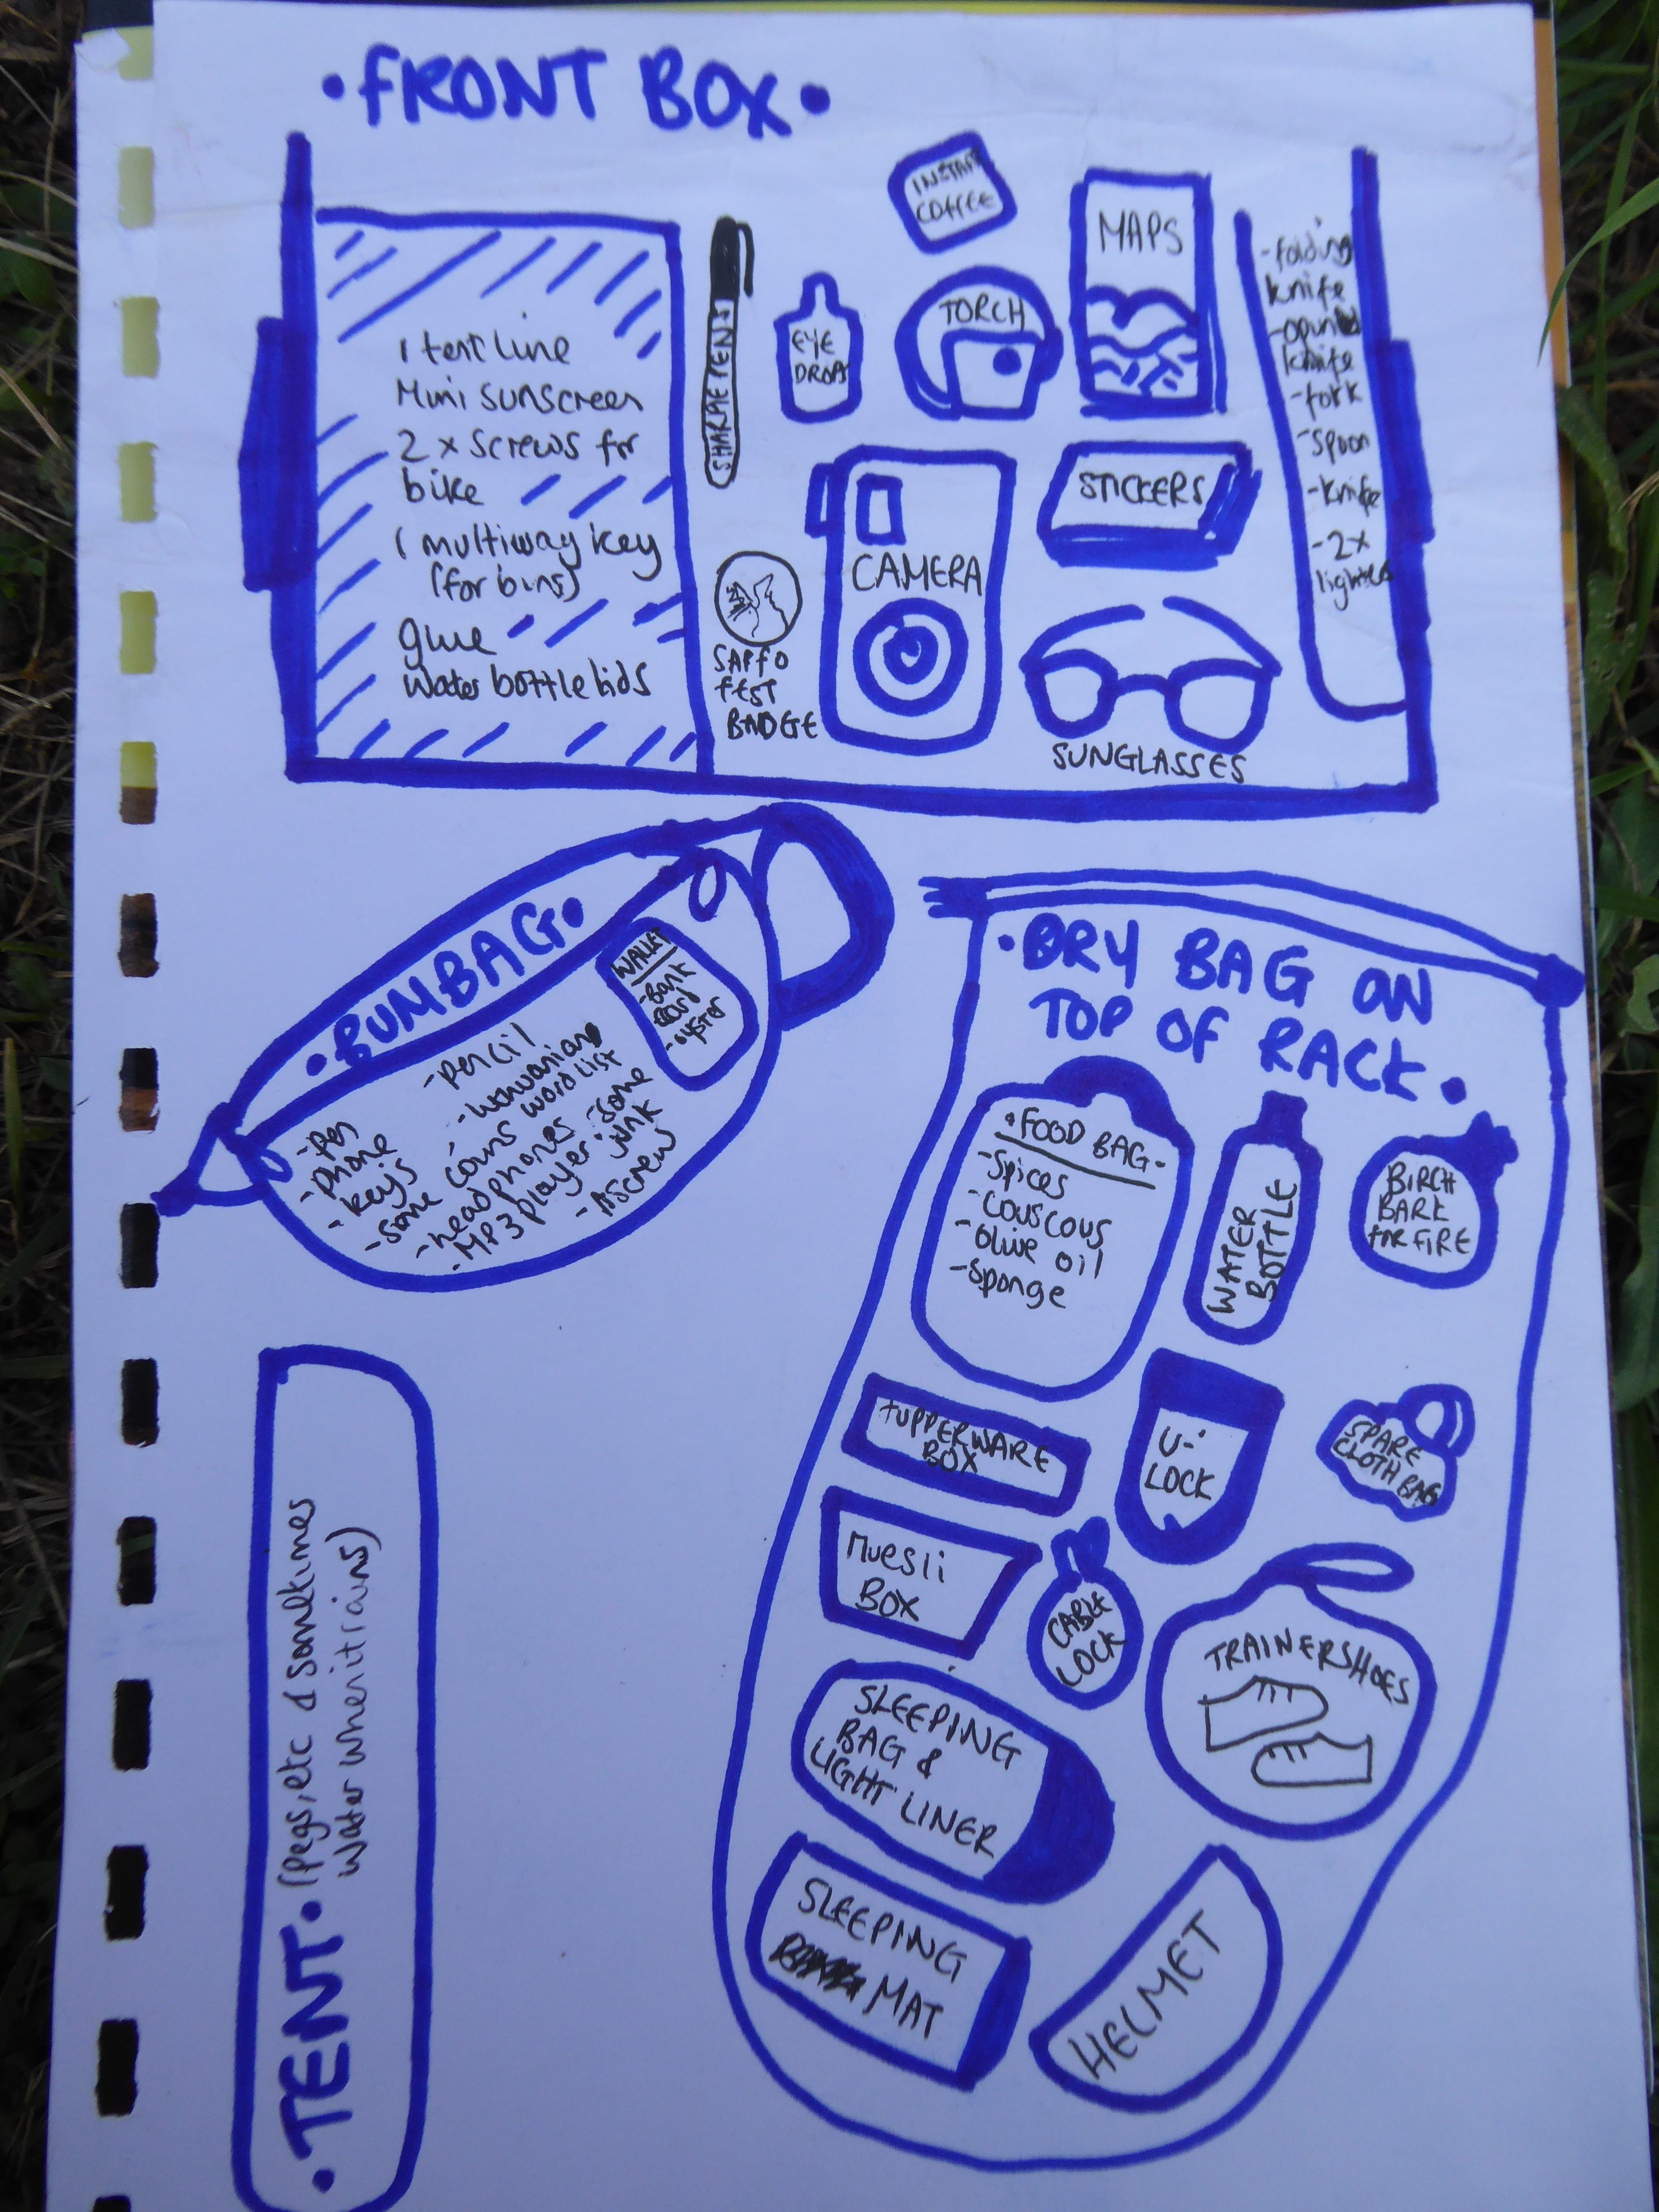 •FRONT BOX•
1 tent line
Mini sunscreen
2 x screws for
bike
1 multiway key
(for bins)
glue
Water bottle lids
SHARPIE PENS
EYE
DROPS
INSTANT
COFFEE
TORCH
MAPS
CAMERA
STICKERS
SAPFO
FEST
BADGE
SUNGLASSES
-folding
knife
knife
-fork
-spoon
-knife
-2x
lighter
•BUMBAG•
WALLET
-Bank
card
-oyster
-pencil
word list
-pen
-phone
-keys
-some coins
-headphones
-MP3 player
-some
junk
-A screw
•DRY BAG ON
TOP OF RACK•
•FOOD BAG-
-Spices
-Couscous
-Olive oil
-Sponge
WATER
BOTTLE
BIRCH
BARK
FOR FIRE
TUPPERWARE
BOX
U-
LOCK
SPARE
CLOTH BAG
Muesli
BOX
CABLE
LOCK
TRAINERSHOES
SLEEPING
BAG &
LIGHT LINER
SLEEPING
MAT
HELMET
•TENT• (pegs, etc & sometimes
water when it rains)